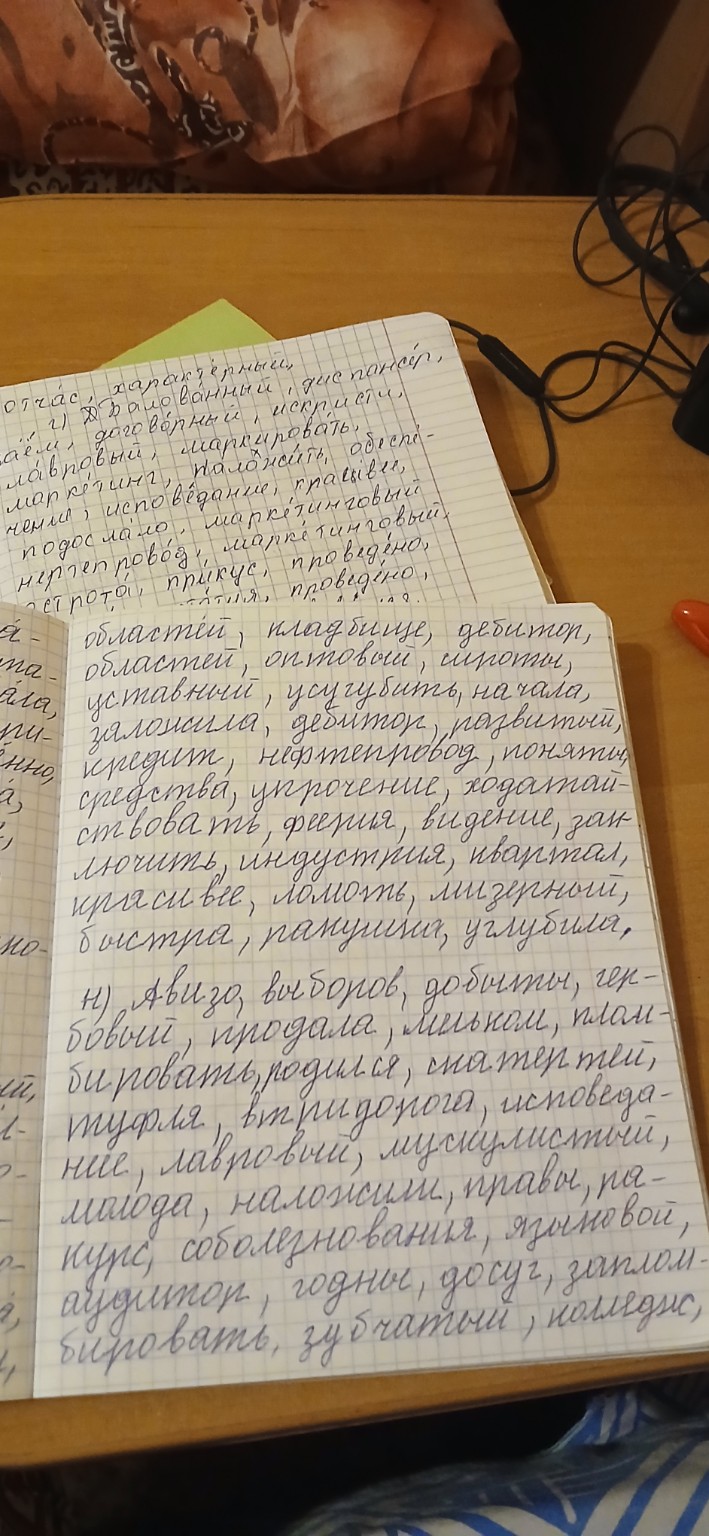 отча́с, характе́рный,
г) Балова́нный, диспансе́р,
аём, догово́рный, искристи,
ла́вровый, маркирова́ть,
марке́тинг, наложи́ть, обеспе́-
чение, испове́дание, краси́вее,
подосла́ло, марке́тинговый
нертепрово́д, марке́тинговый,
острота́, при́кус, проведено́,
проведе́но,
а́-
та-
а́ла,
ри-
ённо,
а́,
но-
ый,
областе́й, кладбище, дебитор,
областей, оптовый, сироты,
уставный, усугубить, начала,
заложила, дебитор, развитый,
кредит, нефтепровод, поняты,
средства, упрочение, ходатай-
ствовать, феерия, видение, зак
лючить, индустрия, квартал,
красивее, ломоть, мизерный,
быстра, ракушка, углубила.
н) Авизо, выборов, добыты, гер-
бовый, продала, мельком, плом-
бировать, родился, скатертей,
туфля, втридорога, исповеда-
ние, лавровый, мускулистый,
молода, наложили, правы, ра-
курс, соболезнования, языковой,
аудитор, годны, досуг, заплом-
бировать, зубчатый, колледж,